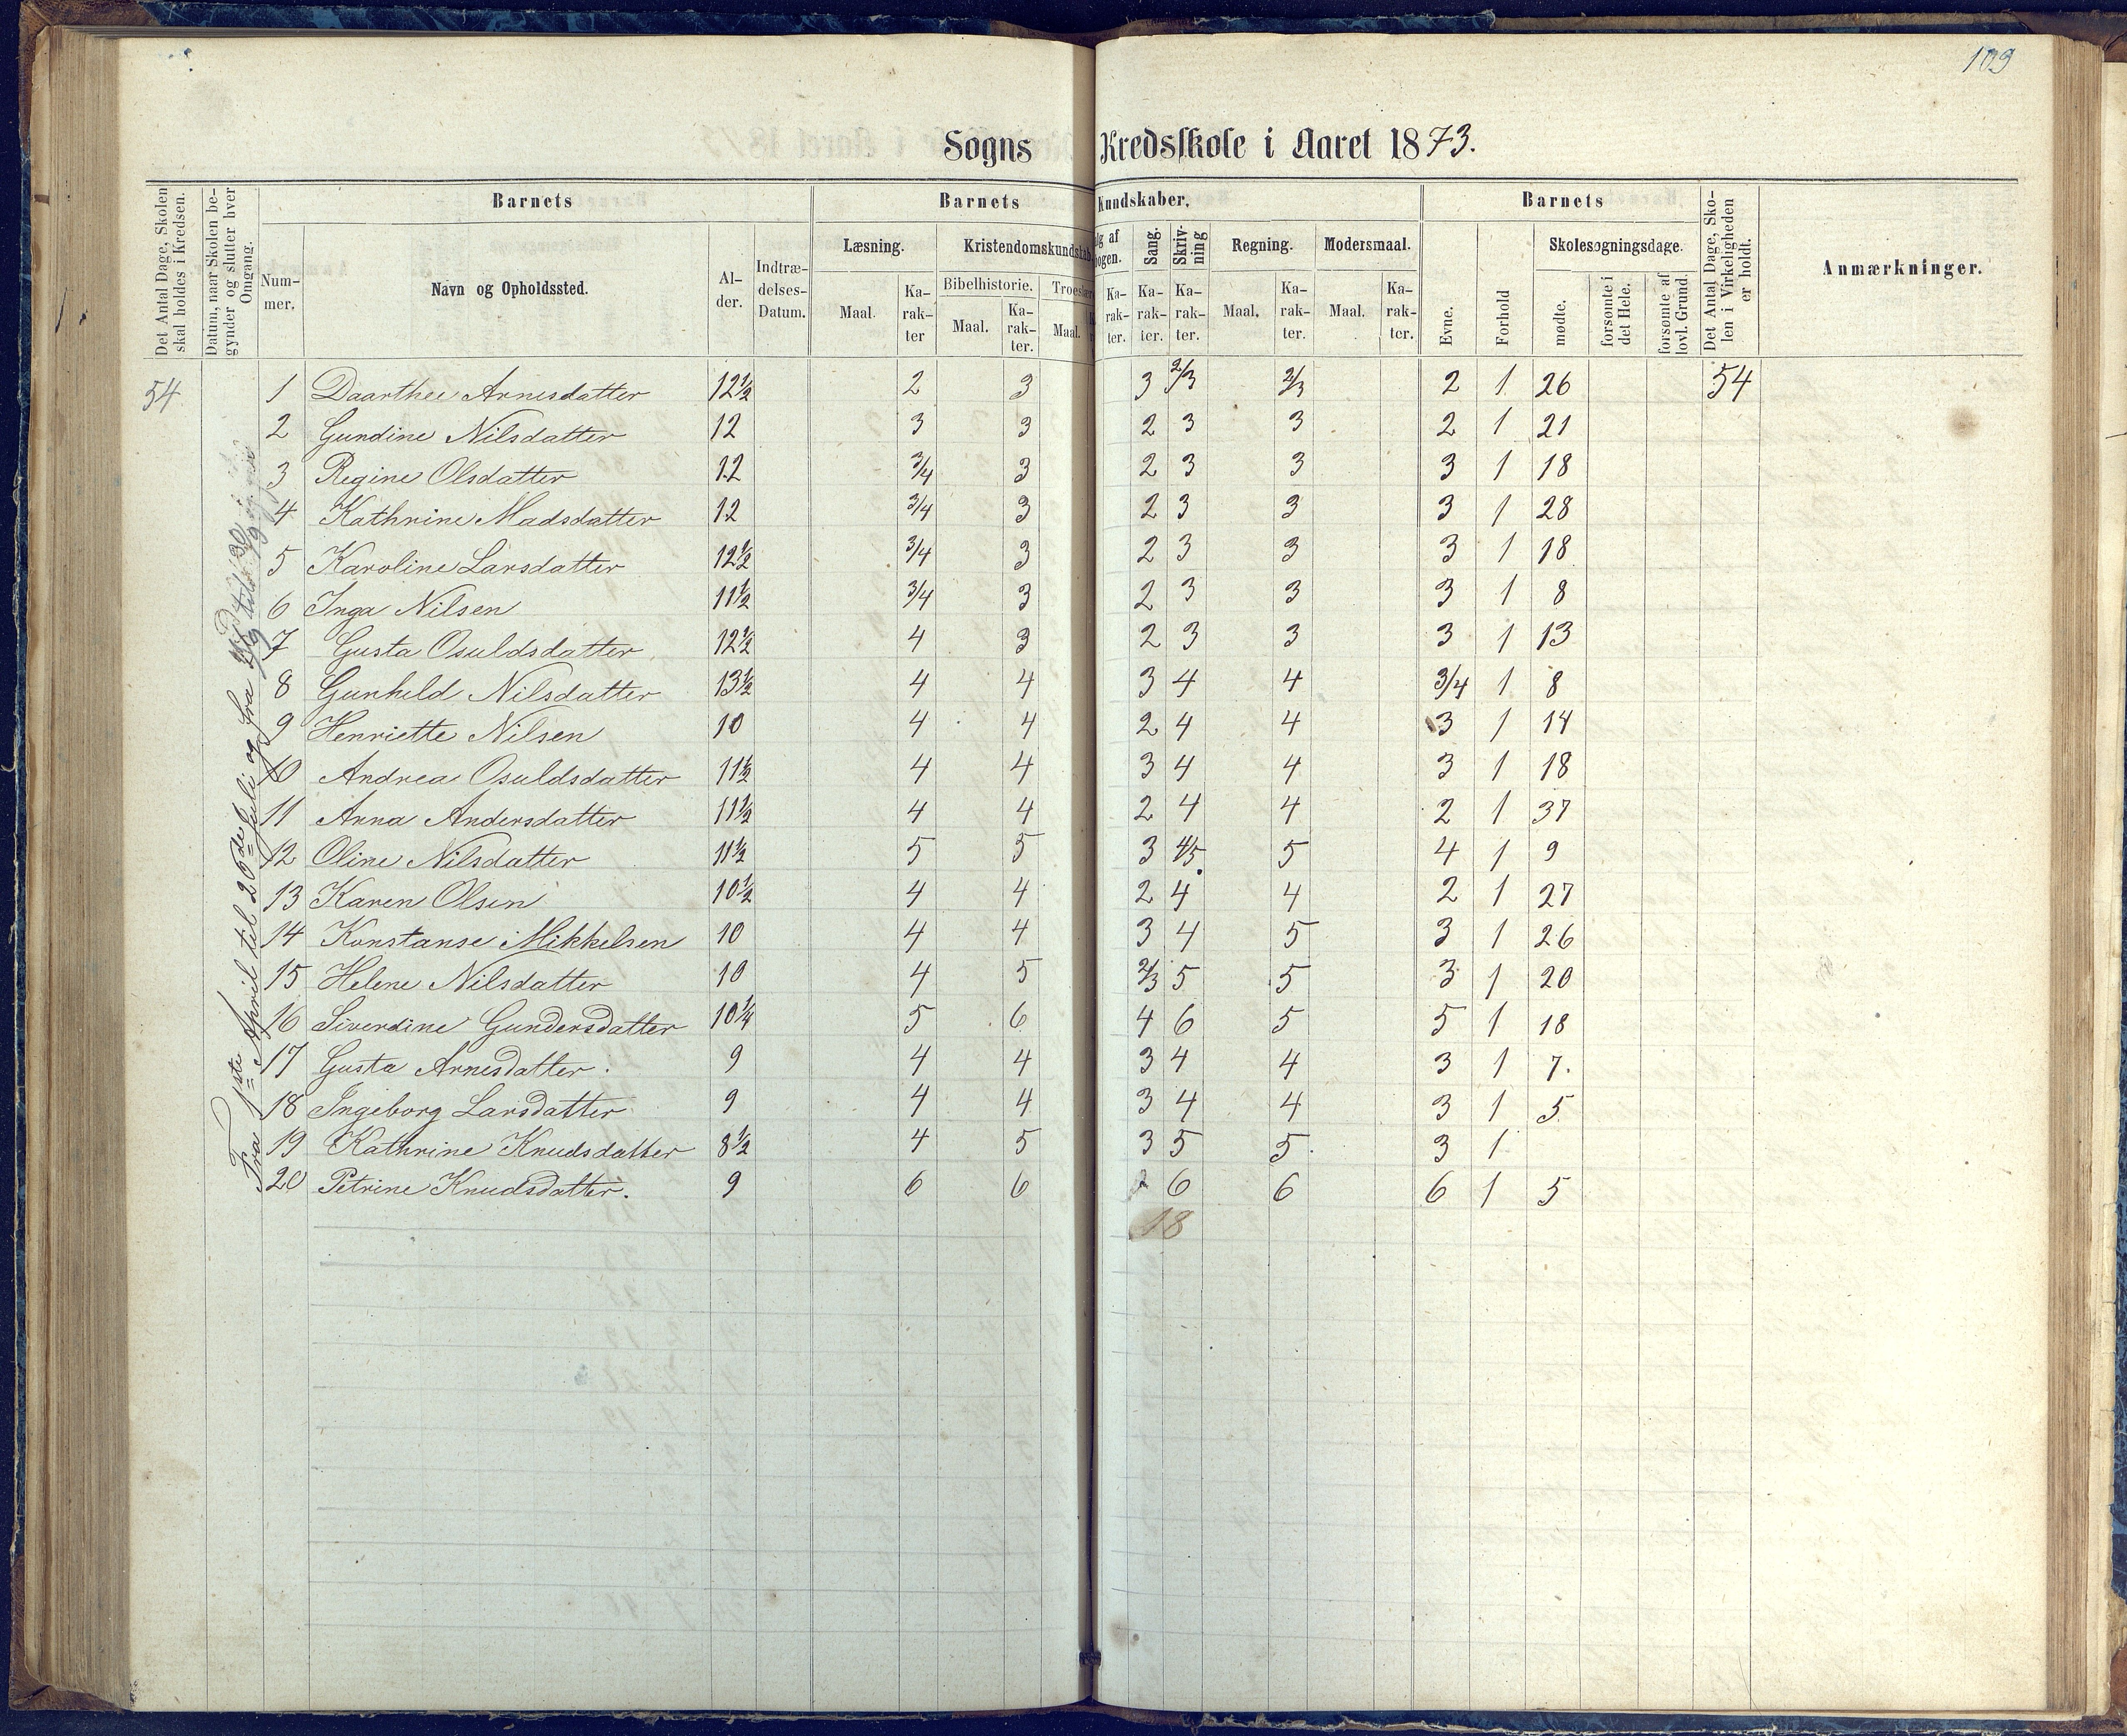 109
Sogns Kredsskole i Aaret 1873.
Det Antal Dage, Skolen skal holdes i Kredsen.
Datum, naar Skolen begynder og slutter hver Omgang.
Barnets
Nummer.
Navn og Opholdssted.
Alder.
Indtrædelses-Datum.
Barnets Kundskaber.
Læsning.
Maal.
Karakter
Kristendomskundskab
Bibelhistorie.
Maal.
Karakter.
Troeslære
Maal.
Karakter.
Sang.
Karakter.
Skrivning
Karakter.
Regning.
Maal.
Karakter.
Modersmaal.
Maal.
Karakter.
Barnets
Evne.
Forhold
Skolesøgningsdage.
mødte.
forsømte i det Hele.
forsømte af lovl. Grund.
Det Antal Dage, Skolen i Virkeligheden er holdt.
Anmærkninger.
Fra 1ste April til 26de Juli og fra
54 1 Daarthee Arnesdatter 12½ 2 3 3 2/3 2/3 2 1 26 54
2 Gundine Nilsdatter 12 3 3 2 3 3 2 1 21
3 Regine Olsdatter 12 3/4 3 2 3 3 3 1 18
4 Kathrine Madsdatter 12 3/4 3 2 3 3 3 1 28
5 Karoline Larsdatter 12½ 3/4 3 2 3 3 3 1 18
6 Inga Nilsen 11½ 3/4 3 2 3 3 3 1 8
7 Gusta Osuldsdatter 12½ 4 3 2 3 3 3 1 13
8 Gunhild Nilsdatter 13½ 4 4 3 4 4 3/4 1 8
9 Henriette Nilsen 10 4 4 2 4 4 3 1 14
10 Andrea Osuldsdatter 11½ 4 4 3 4 4 3 1 18
11 Anna Andersdatter 11½ 4 4 2 4 4 2 1 37
12 Oline Nilsdatter 11½ 5 5 3 4/5 5 4 1 9
13 Karen Olsen 10½ 4 4 2 4 4 2 1 27
14 Konstanse Mikkelsen 10 4 4 3 4 5 3 1 26
15 Helene Nilsdatter 10 4 5 2/3 5 5 3 1 20
16 Siverdine Gundersdatter 10¼ 5 6 4 6 5 5 1 18
17 Gusta Arnesdatter. 9 4 4 3 4 4 3 1 7.
18 Ingeborg Larsdatter 9 4 4 3 4 4 3 1 5
19 Kathrine Knudsdatter 8½ 4 5 3 5 5. 3 1
20 Petrine Knudsdatter. 9 6 6 6 6 6 1 5
18